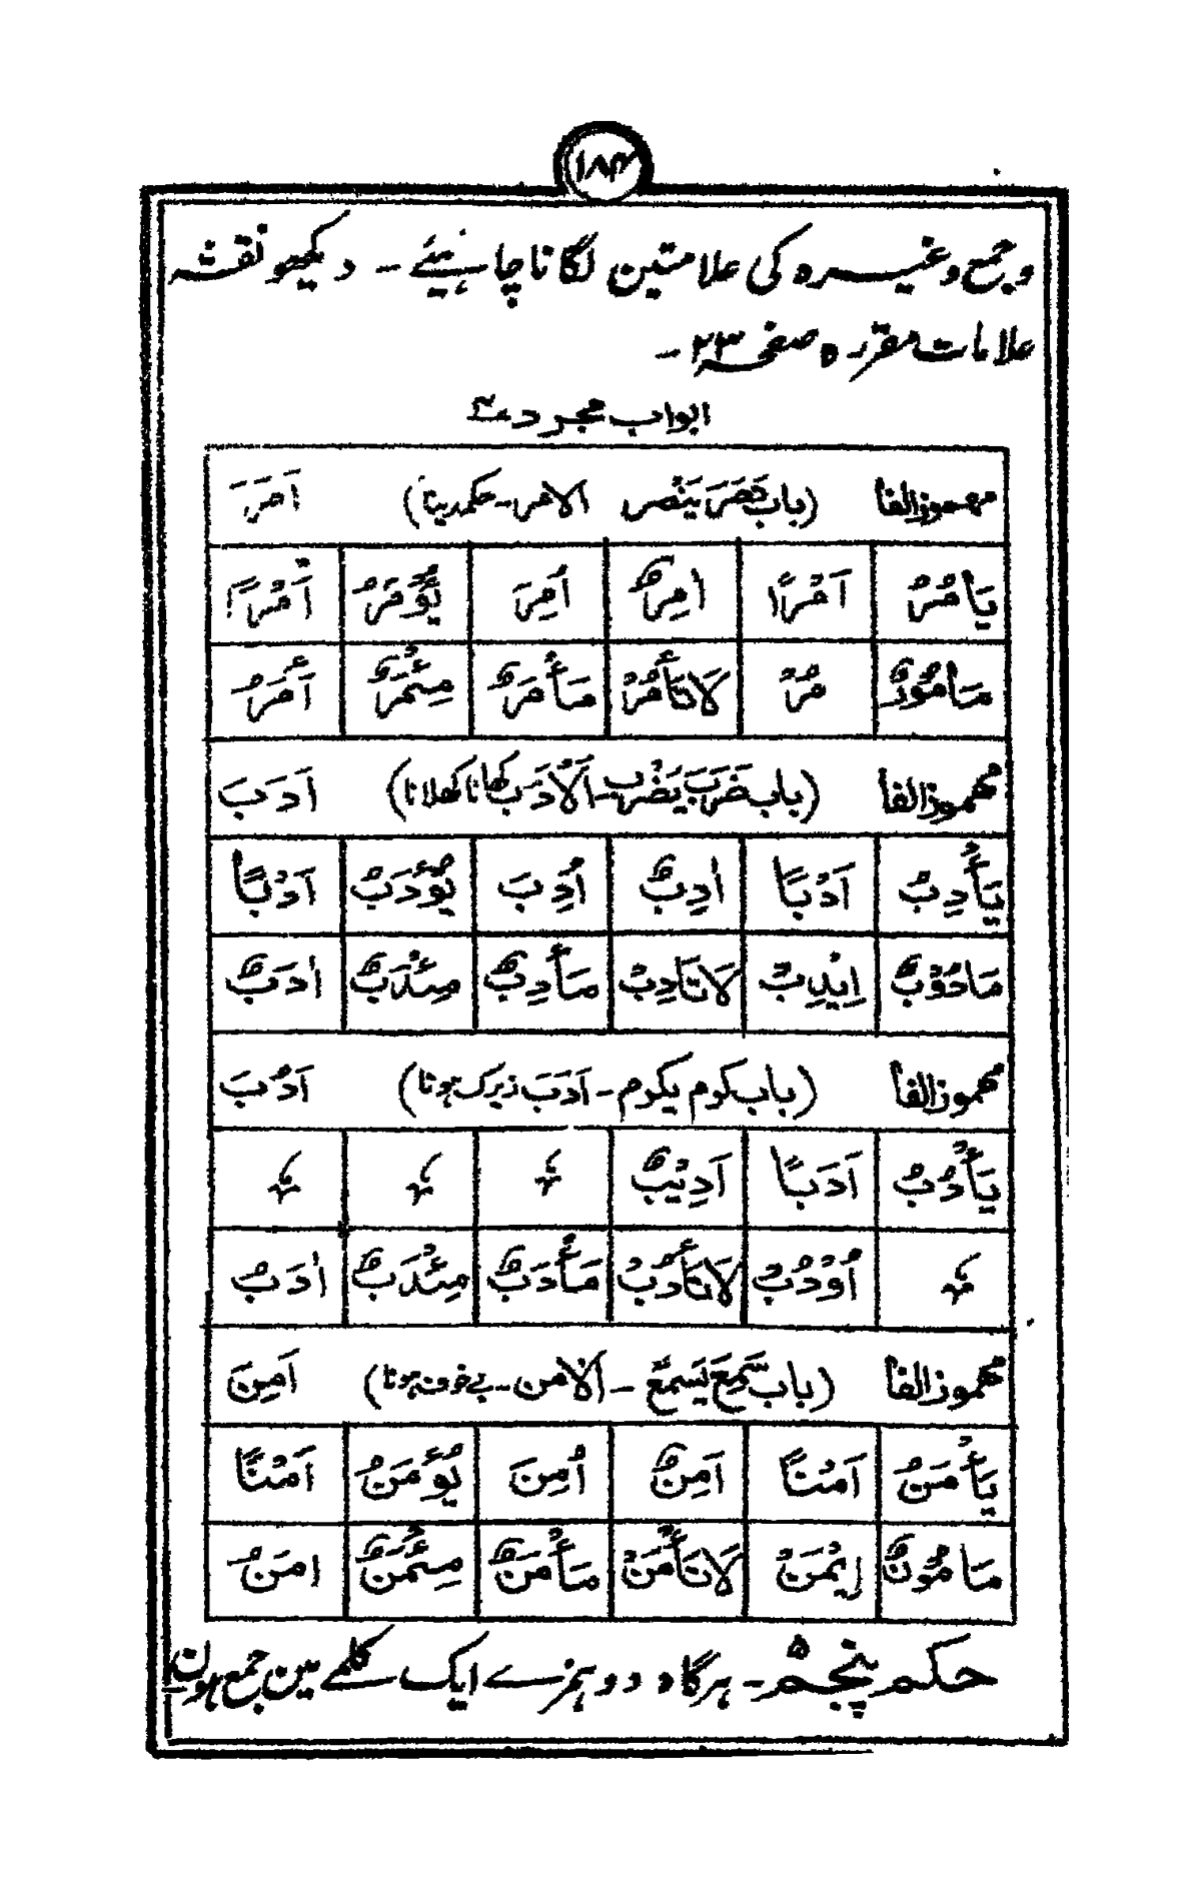 ۱۸۴
و جمع وغیرہ کی علامتین لگانا چاہیئے - دیکھو نقشہ
علامات مقررہ صفحہ ۲۳ -
ابواب مجرد سے
مہموز الفا (باب نَصَرَ یَنْصُر الامر - حکم دینا) اَمَرَ
یَاْمُرُ اَمْرًا اٰمِرٌ اُمِرَ یُؤْمَرُ اَمْرًا
مَامُوْرٌ مُرْ لَا تَأْمُرْ مَأْمَرٌ مِئْمَرٌ آمَرُ
مہموز الفا (باب ضَرَبَ یَضْرِب - اَلْاَدَب کھانا کھلانا) اَدَبَ
یَأْدِبُ اَدْبًا اٰدِبٌ اُدِبَ یُؤْدَبُ اَدْبًا
مَادُوْبٌ اِیْدِبْ لَا تَادِبْ مَأْدِبٌ مِئْدَبٌ اٰدَبُ
مہموز الفا (باب کرم یکرم - اَدَبَ زیرک ہونا) اَدُبَ
یَأْدُبُ اَدَبًا اَدِیْبٌ
اُوْدُبْ لَا تَأْدُبْ مَأْدَبٌ مِئْدَبٌ اٰدَبُ
مہموز الفا (باب سَمِعَ یَسْمَعُ - الامن - بے خوف ہونا) اَمِنَ
یَأْمَنُ اَمْنًا اٰمِنٌ اُمِنَ یُؤْمَنُ اَمْنًا
مَامُوْنٌ اِیْمَنْ لَا تَأْمَنْ مَأْمَنٌ مِئْمَنٌ اٰمَنُ
حکم پنجم ۵ - ہرگاہ دو ہمزے ایک کلمے مین جمع ہون